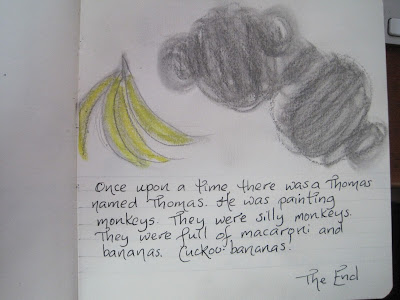 Once upon a time there was a Thomas
named Thomas. He was painting
monkeys. They were silly monkeys.
They were full of macaroni and
bananas. Cuckoo bananas.
The End